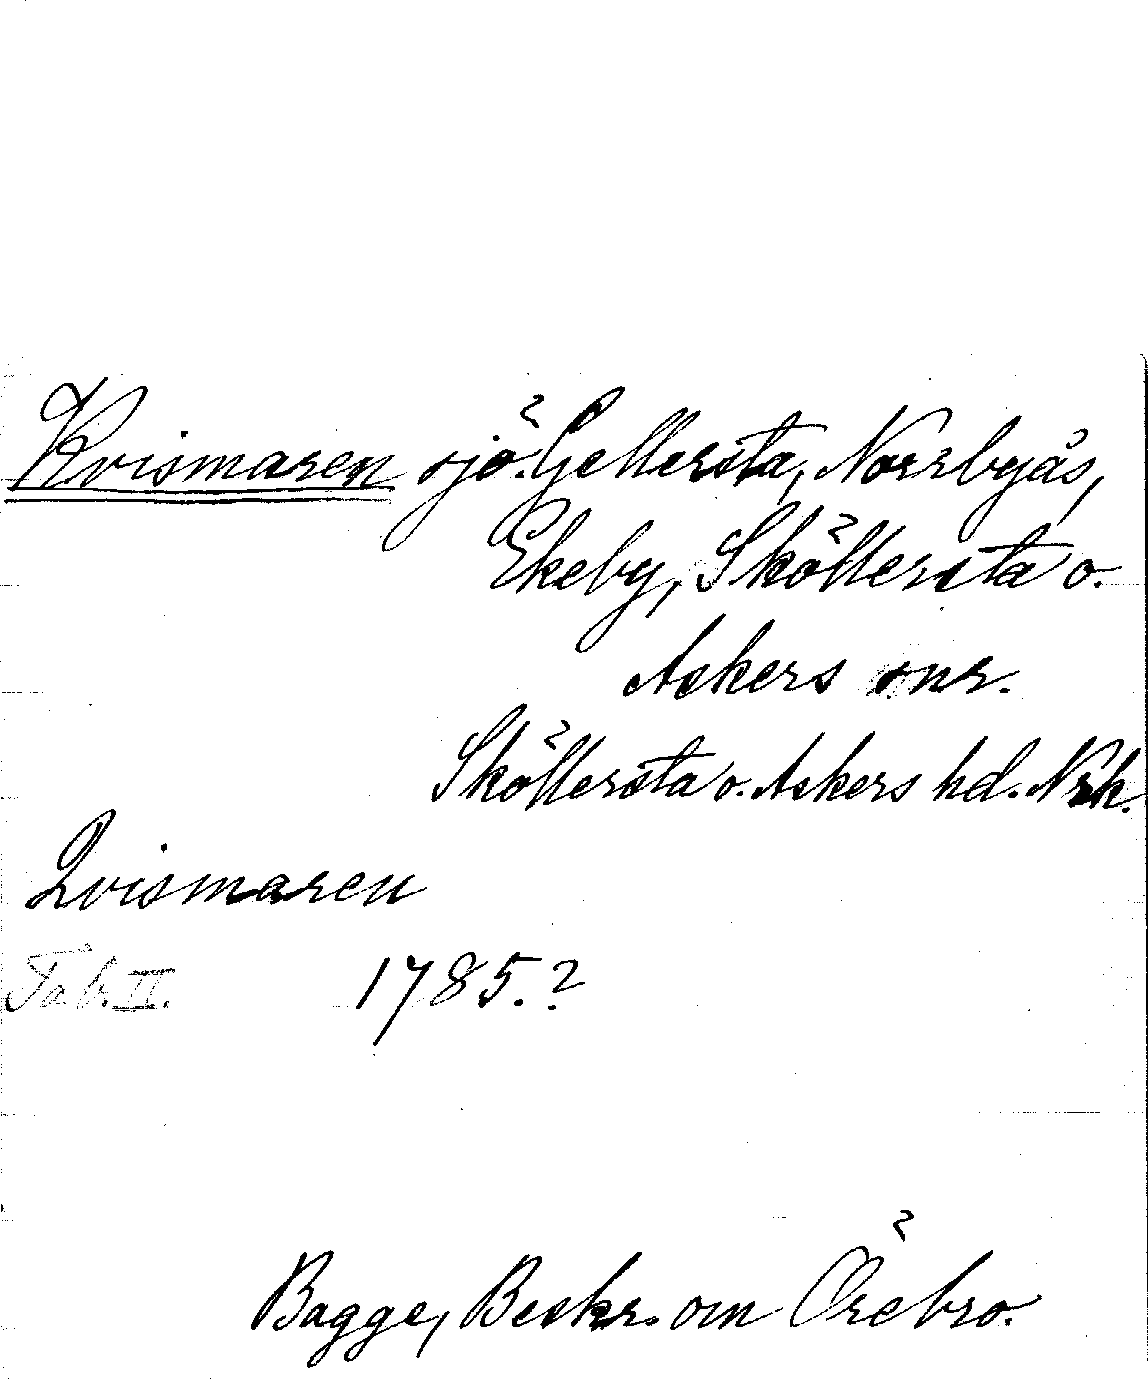 Kvismaren sjö. Gellersta, Norrbyås,
Ekeby, Sköllersta o.
Askers snr.
Sköllersta o. Askers hd. Nrk.
Qvismaren
Tab. II. 1785.?
Bagge, Beskr. om Örebro.